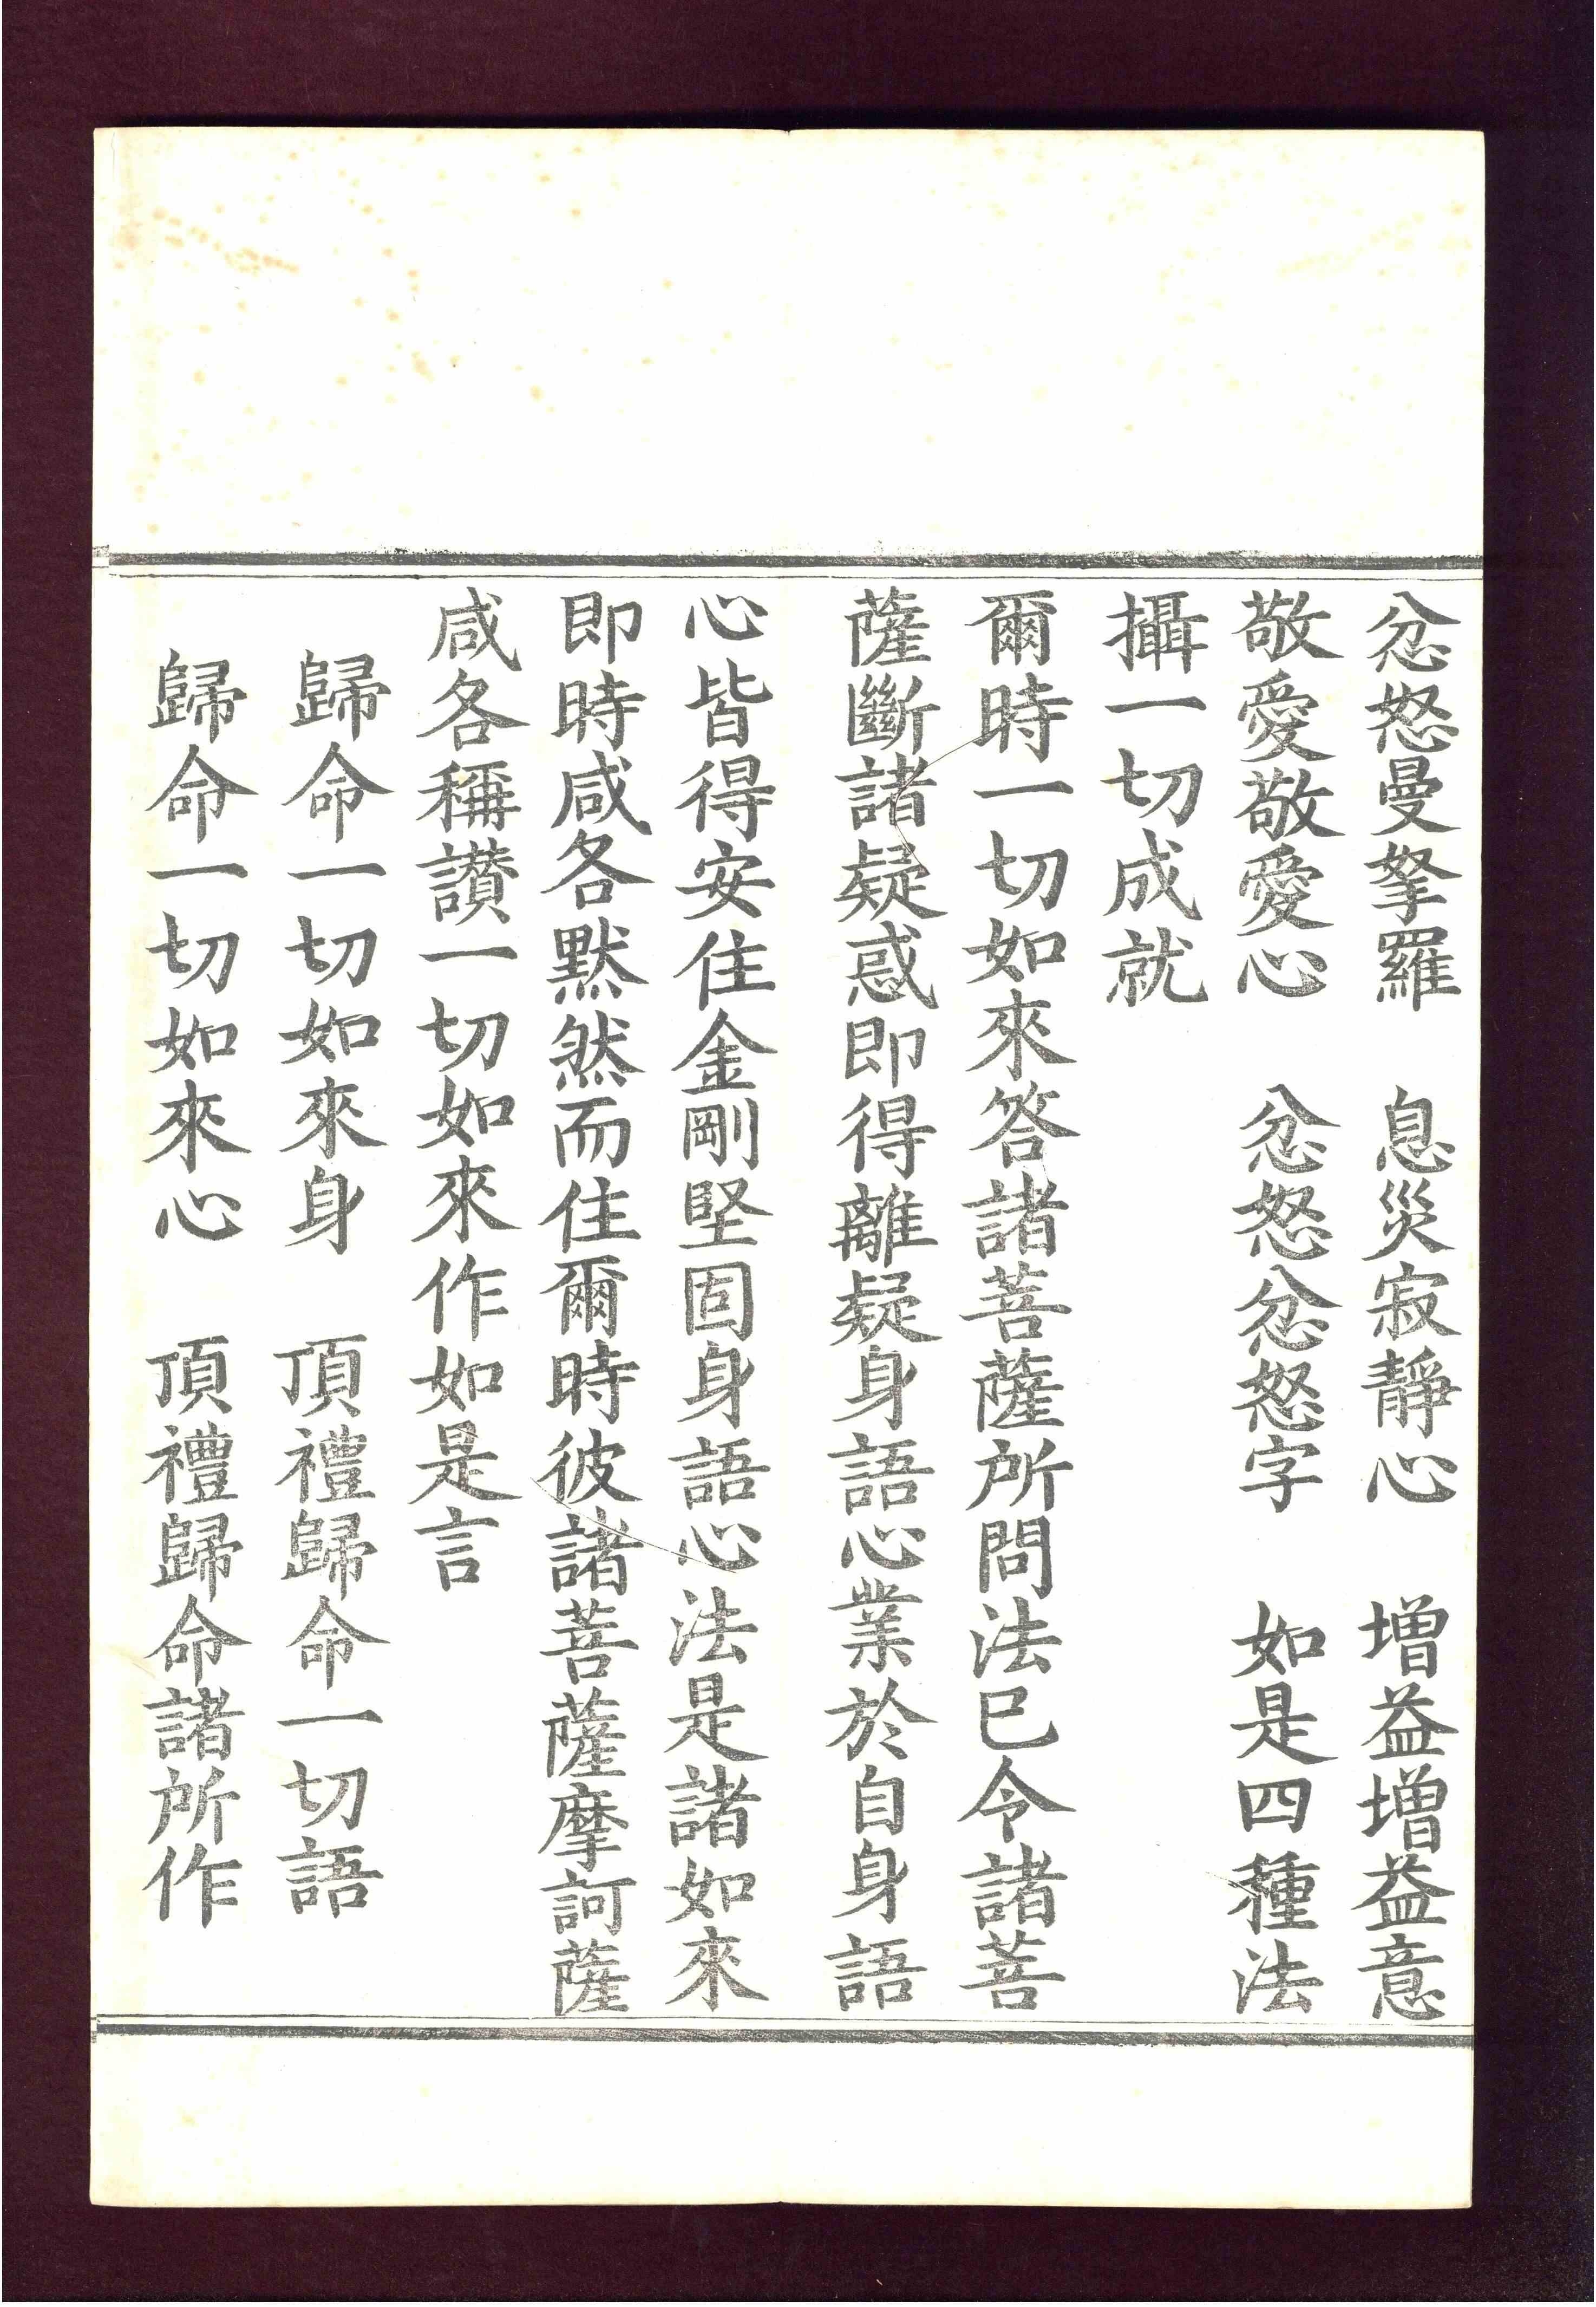 忿怒曼拏羅　息災寂靜心　增益增益意
敬愛敬愛心　忿怒忿怒字　如是四種法
攝一切成就
爾時一切如來答諸菩薩所問法已令諸菩
薩斷諸疑惑即得離疑身語心業於自身語
心皆得安住金剛堅固身語心法是諸如來
即時咸各默然而住爾時彼諸菩薩摩訶薩
咸各稱讚一切如來作如是言
歸命一切如來身　頂禮歸命一切語
歸命一切如來心　頂禮歸命諸所作